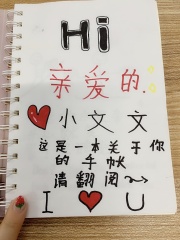 Hi
亲爱的.
小文文
这是一本关于你
的手帐
请翻阅~
I ❤ U